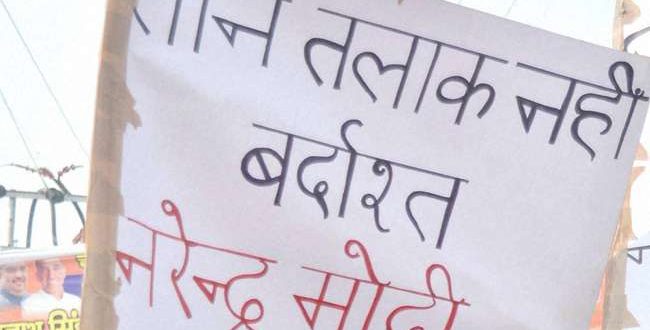 तीन तलाक नहीं
बर्दाश्त
नरेन्द्र मोदी